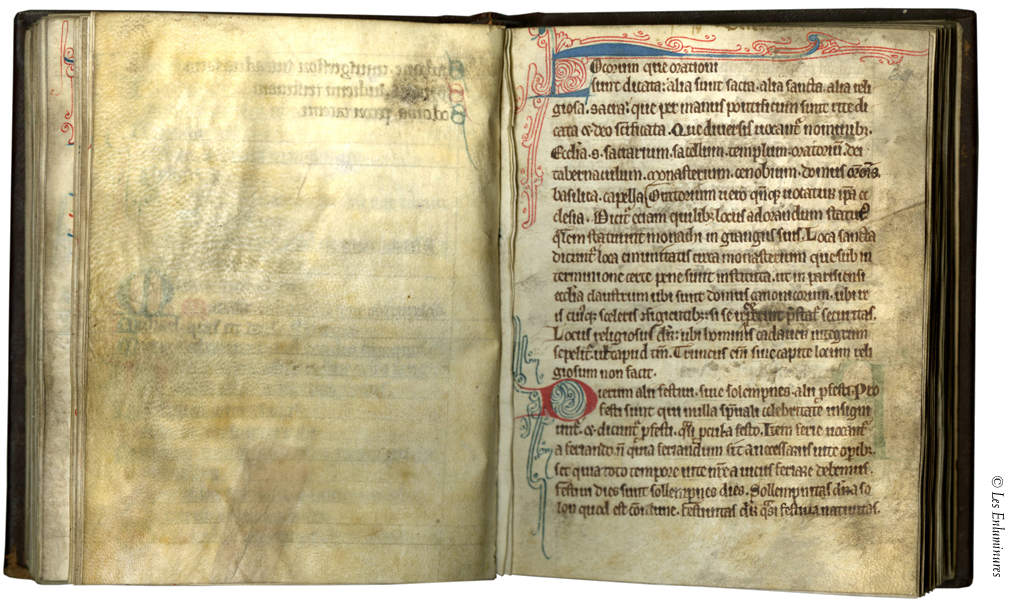 Locorum que orationi
sunt dicata: alia sunt sacra. alia sancta. alia reli
giosa. Sacra: que per manus pontificum sunt rite di
cata & deo scificata. Que diversis vocant nominib;
Ecclia. s. sacrarium. sacellum. templum. oratoriu. dei
tabernaculum. monasterium. cenobium. domus oronis.
basilica. capella. Oratorium vero qnq; vocatur ipa ec
clesia. Dicit eciam quilib; locus adorandum
qlem statuunt monachi in grangiis suis. Loca sancta
dicunt loca emunitatis circa monasterium que sub in
terminione certe pene sunt instituta. ut in parisiensi
ecclia claustrum ubi sunt domus canonicorum. ubi re
is cuiq; sceleris
Locus religiosus dr: ubi hominis cadaver integrum
sepelit. vel capud tm. Truncus eni sine capite locum reli
giosum non facit.
Dierum alii festivi. sive solempnes. alii pfesti. Pro
festi sunt qui nulla spuali celebritate insigni
unt. & dicunt pfesti. qsi pcul a festo. Item ferie vocant
a feriando. n quia feriandum sit a necessariis vite opib;
set quia toto tempore vite nre a viciis feriare debemus.
festivi dies sunt sollempnes dies. Sollempnitas dr a so
lon quod est comune. festivitas dr qsi festiva nativitas.
© Les Enluminures